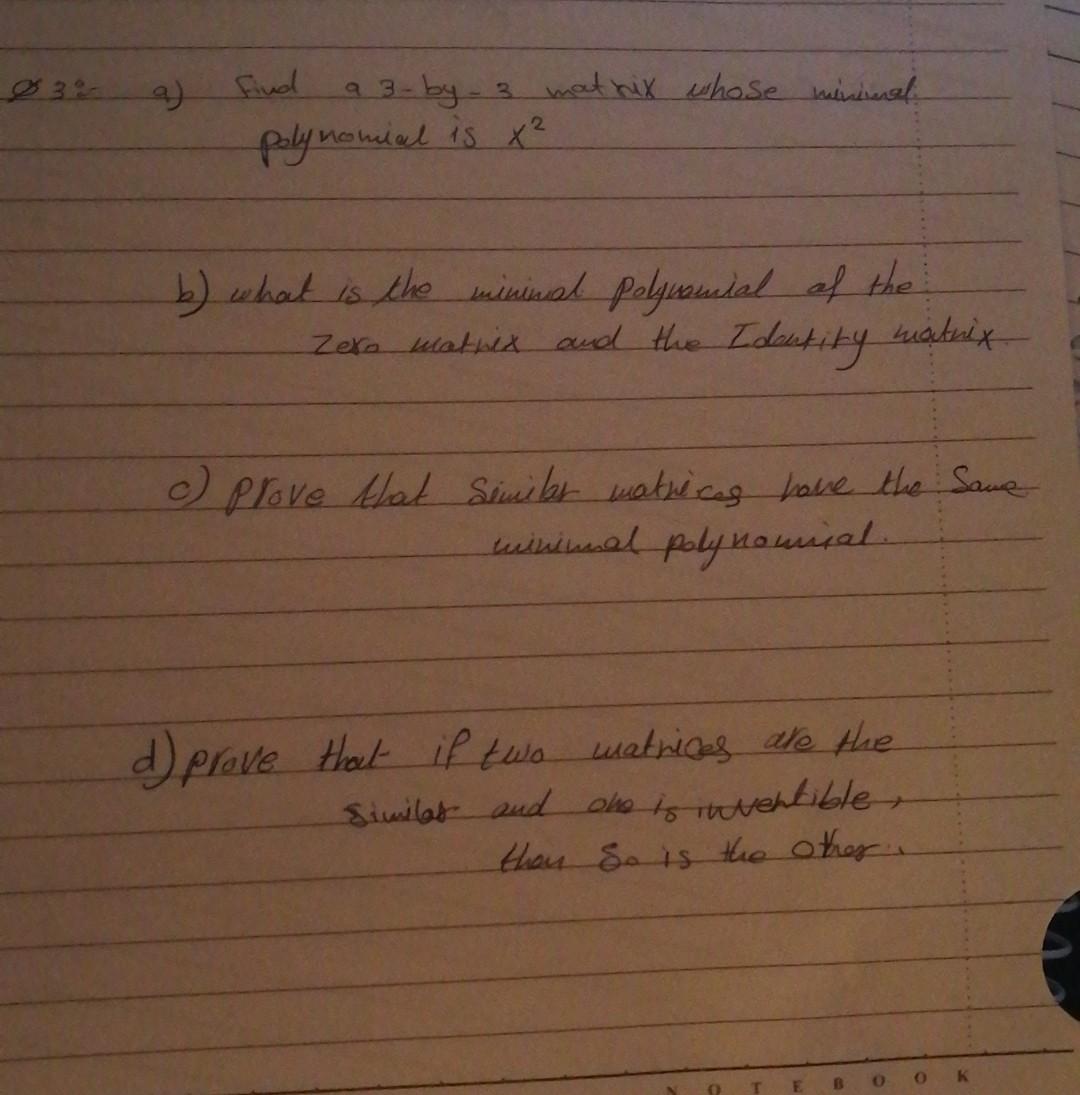 Q3:- a) Find a 3-by-3 matrix whose minimal
polynomial is x²
b) what is the minimal polynomial of the
Zero matrix and the Identity matrix
c) prove that Similar matrices have the Same
minimal polynomial.
d) prove that if two matrices are the
Similar and one is invertible,
then So is the other.
NOTEBOOK